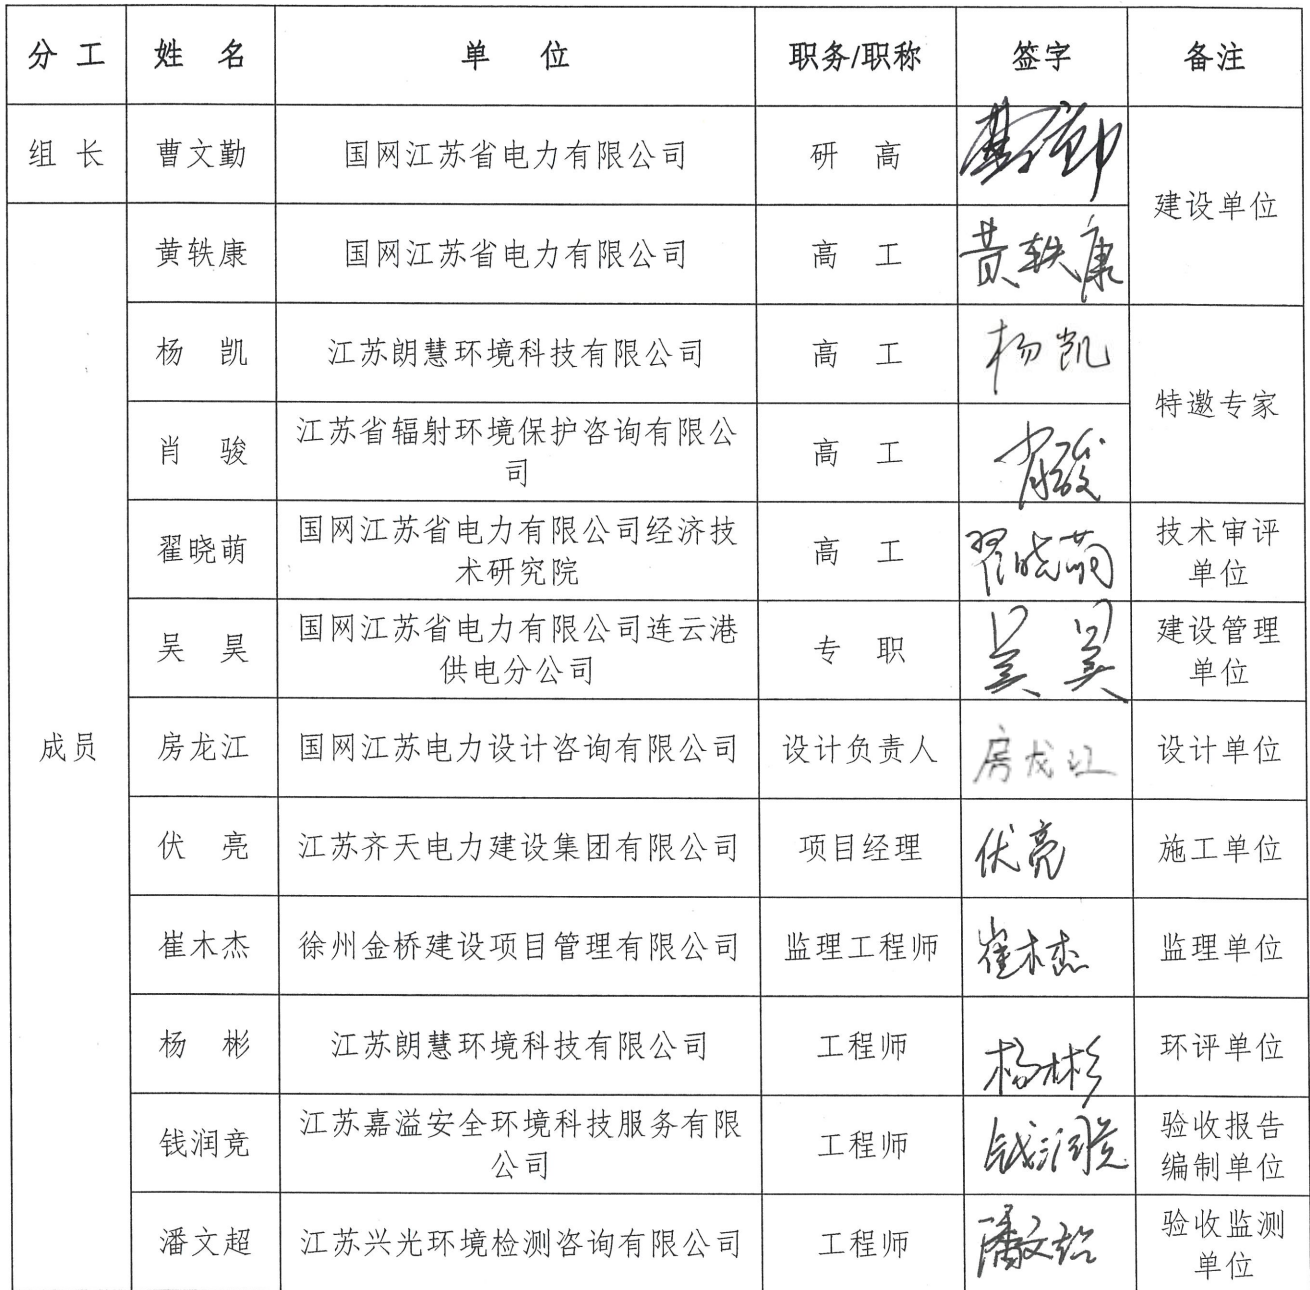 分 工 姓 名 单 位 职务/职称 签字 备注
组 长 曹文勤 国网江苏省电力有限公司 研 高 建设单位
成员
黄轶康 国网江苏省电力有限公司 高 工 黄轶康
杨 凯 江苏朗慧环境科技有限公司 高 工 杨凯 特邀专家
肖 骏 江苏省辐射环境保护咨询有限公
司 高 工 肖骏
翟晓萌 国网江苏省电力有限公司经济技
术研究院 高 工 翟晓萌 技术审评
单位
吴 昊 国网江苏省电力有限公司连云港
供电分公司 专 职 吴昊 建设管理
单位
房龙江 国网江苏电力设计咨询有限公司 设计负责人 房龙江 设计单位
伏 亮 江苏齐天电力建设集团有限公司 项目经理 伏亮 施工单位
崔木杰 徐州金桥建设项目管理有限公司 监理工程师 崔木杰 监理单位
杨 彬 江苏朗慧环境科技有限公司 工程师 杨彬 环评单位
钱润竞 江苏嘉溢安全环境科技服务有限
公司 工程师 钱润竞 验收报告
编制单位
潘文超 江苏兴光环境检测咨询有限公司 工程师 潘文超 验收监测
单位